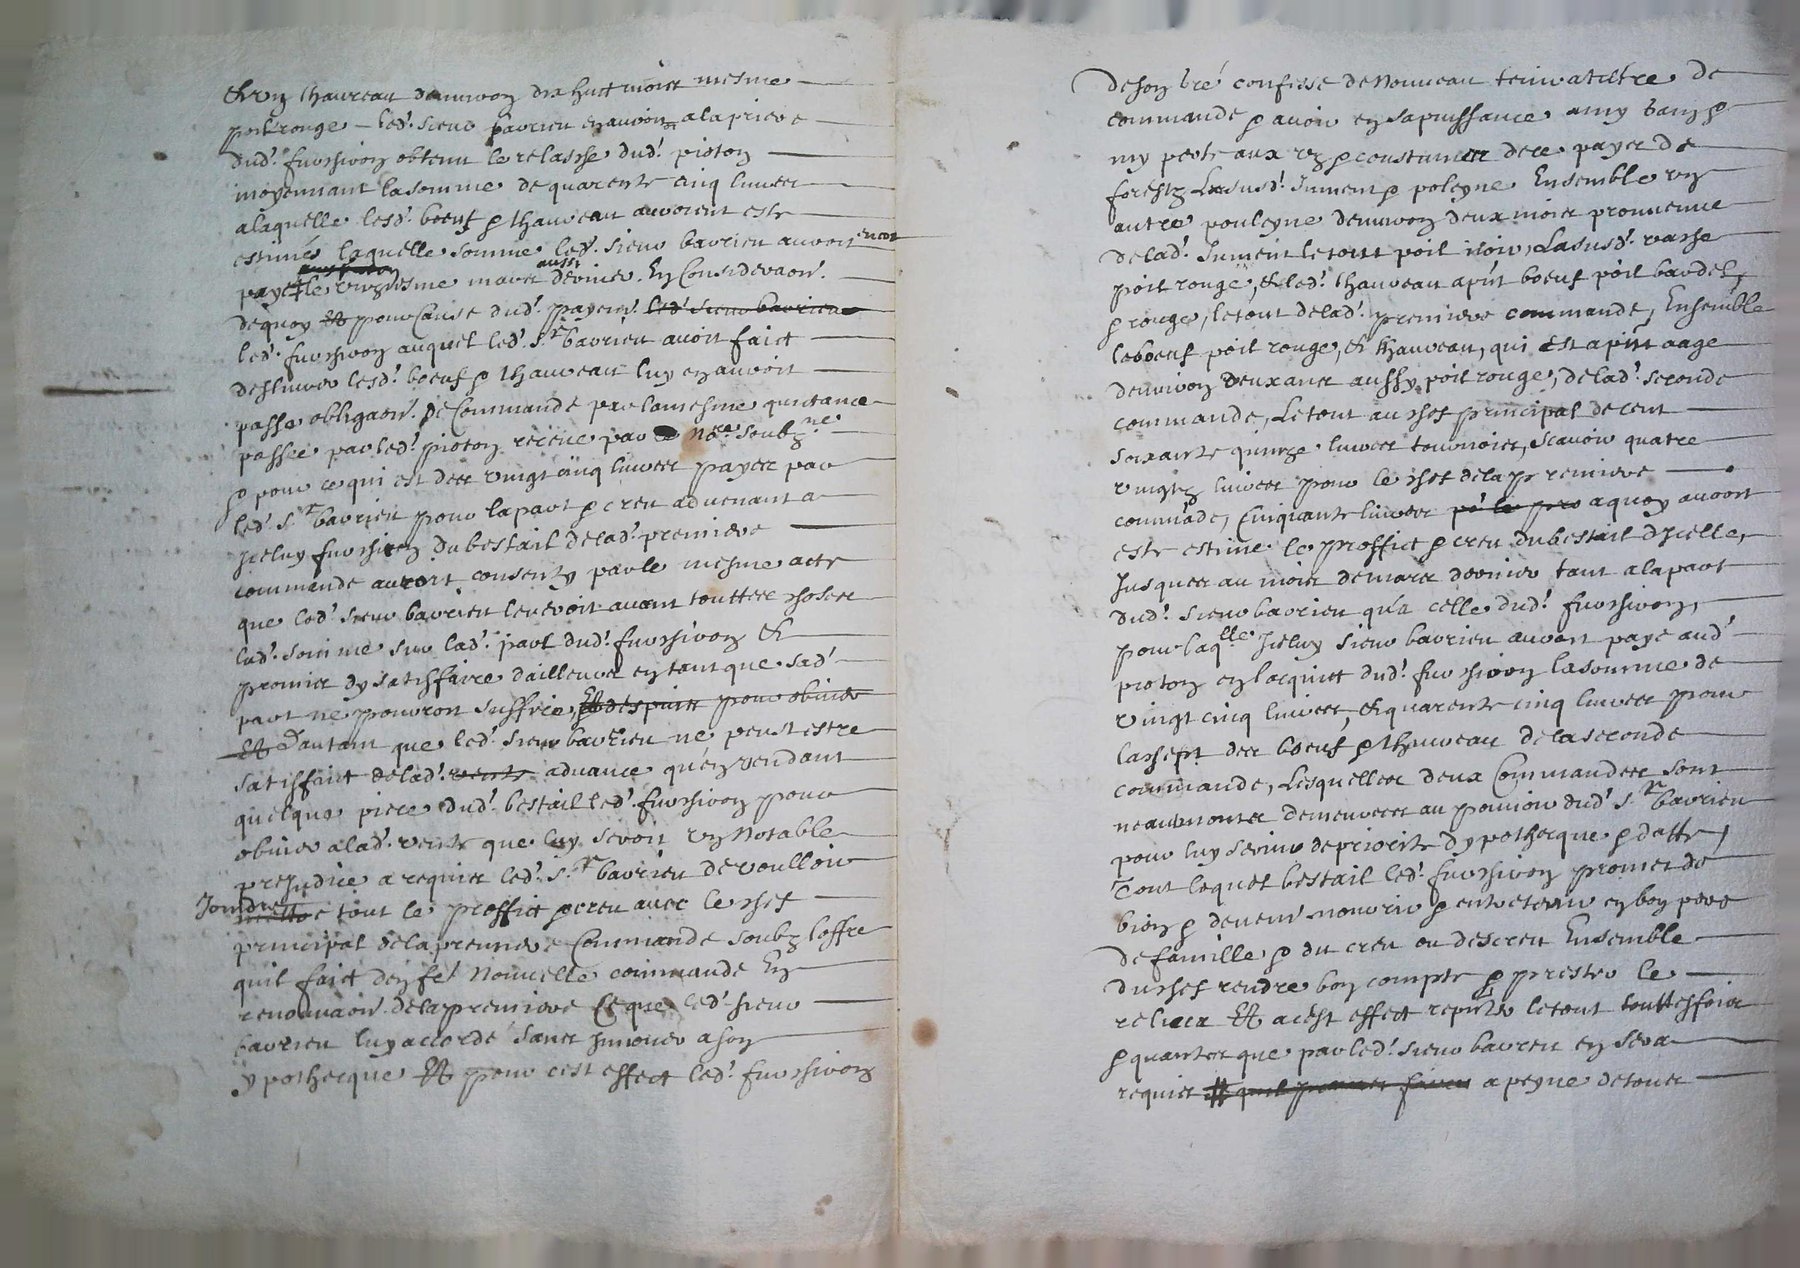 & ung thaureau denviron dix huit mois mesme
poil rouge led. sieur bavrieu en avoir a la priere
dud. fursivon obtenu le relasse dud. pioton
moyennant la somme de quarente cinq livres
a laquelle lesd. boeuf & thaureau avoient este
estimés laquelle somme led. sieur bavrieu auroit encor
payé le mars aussi dernier. En consideraon.
de quoy Et pour cause dud. payem. led. sieur bavrieu
led. fursivon auquel led. Sr. bavrieu avoit faict
deslivrer lesd. boeuf & thaureau luy en auroit
passé obligaon. de commande par la mesme quictance
passée par led. pioton receue par nore. soubzné
& pour ce qui est des vingt cinq livres payés par
led. Sr. bavrieu pour la part & creu advenant a
Iceluy fursivon du bestail de lad. premiere
commande auroit consenty par le mesme acte
que led. sieur bavrieu leveroit avant touttes choses
lad. somme sur lad. part dud. fursivon &
promis dy satisfaire dailleurs en tant que sad.
part ne pourroit suffire, Et despuis pour obvier
Et Dautant que led. sieur bavrieu ne peust estre
satisfaict de lad. vente advance qu'en vendant
quelque piece dud. bestail led. fursivon pour
obvier a lad. vente que luy seroit ung notable
prejudice a requis led. Sr. bavrieu de voulloir
Joindre tout le proffict & creu avec le chef
principal de la premiere commande soubz loffre
quil faict den fe. nouvelle commande En
renovaon. de la premiere Ce que led. sieur
bavrieu luy accorde sans innover a son
ypothecque Et pour cest effect led. fursivon
de son bré confesse de nouveau tenir a tiltre de
commande & avoir en sa puissance a my bang &
my perte aux uz & constumes de ce payer de
forestz Lasusd. Jument & poleyne Ensemble ung
autre pouleyne denviron deux mois provenue
de lad. Jument le tout poil noir, Lasusd. vasse
poil rouge, & led. thaureau apnt boeuf poil bardel,
& rouge, le tout de lad. premiere commande, Ensemble
le boeuf poil rouge, & thaureau, qui est apnt aage
denviron deux ans aussy poil rouge, de lad. seconde
commande, Le tout au chef principal de cent
soixante quinze livres tournois, scavoir quatre
vingtz livres pour le chef de la premiere
commade, Cinquante livres a quoy avoit
este estimé le proffict & creu du bestail d'Icelle,
Jusques au mois de mars dernier tant a la part
dud. sieur bavrieu qu'a celle dud. fursivon,
pour laqlle Iceluy sieur bavrieu auroit payé aud.
pioton en lacquict dud. fursivon la somme de
vingt cinq livres, & quarente cinq livres pour
lassept des boeuf & thaureau de la seconde
commande, Lesquelles deux Commandes sont
neaulmoings demeurees au pouvoir dud. Sr. bavrieu
pour luy servir de priorite dypothecque & datte,
Tout lequel bestail led. fursivon promet de
bien & deuem. nourrir & entretenir en bon pere
de famille & du creu ou descreu Ensemble
du chef rendre bon compte & prester le
relicca Et a cest effect repnter le tout touttesfois
& quantes que par led. sieur bavrieu en sera
requis a peyne de tous